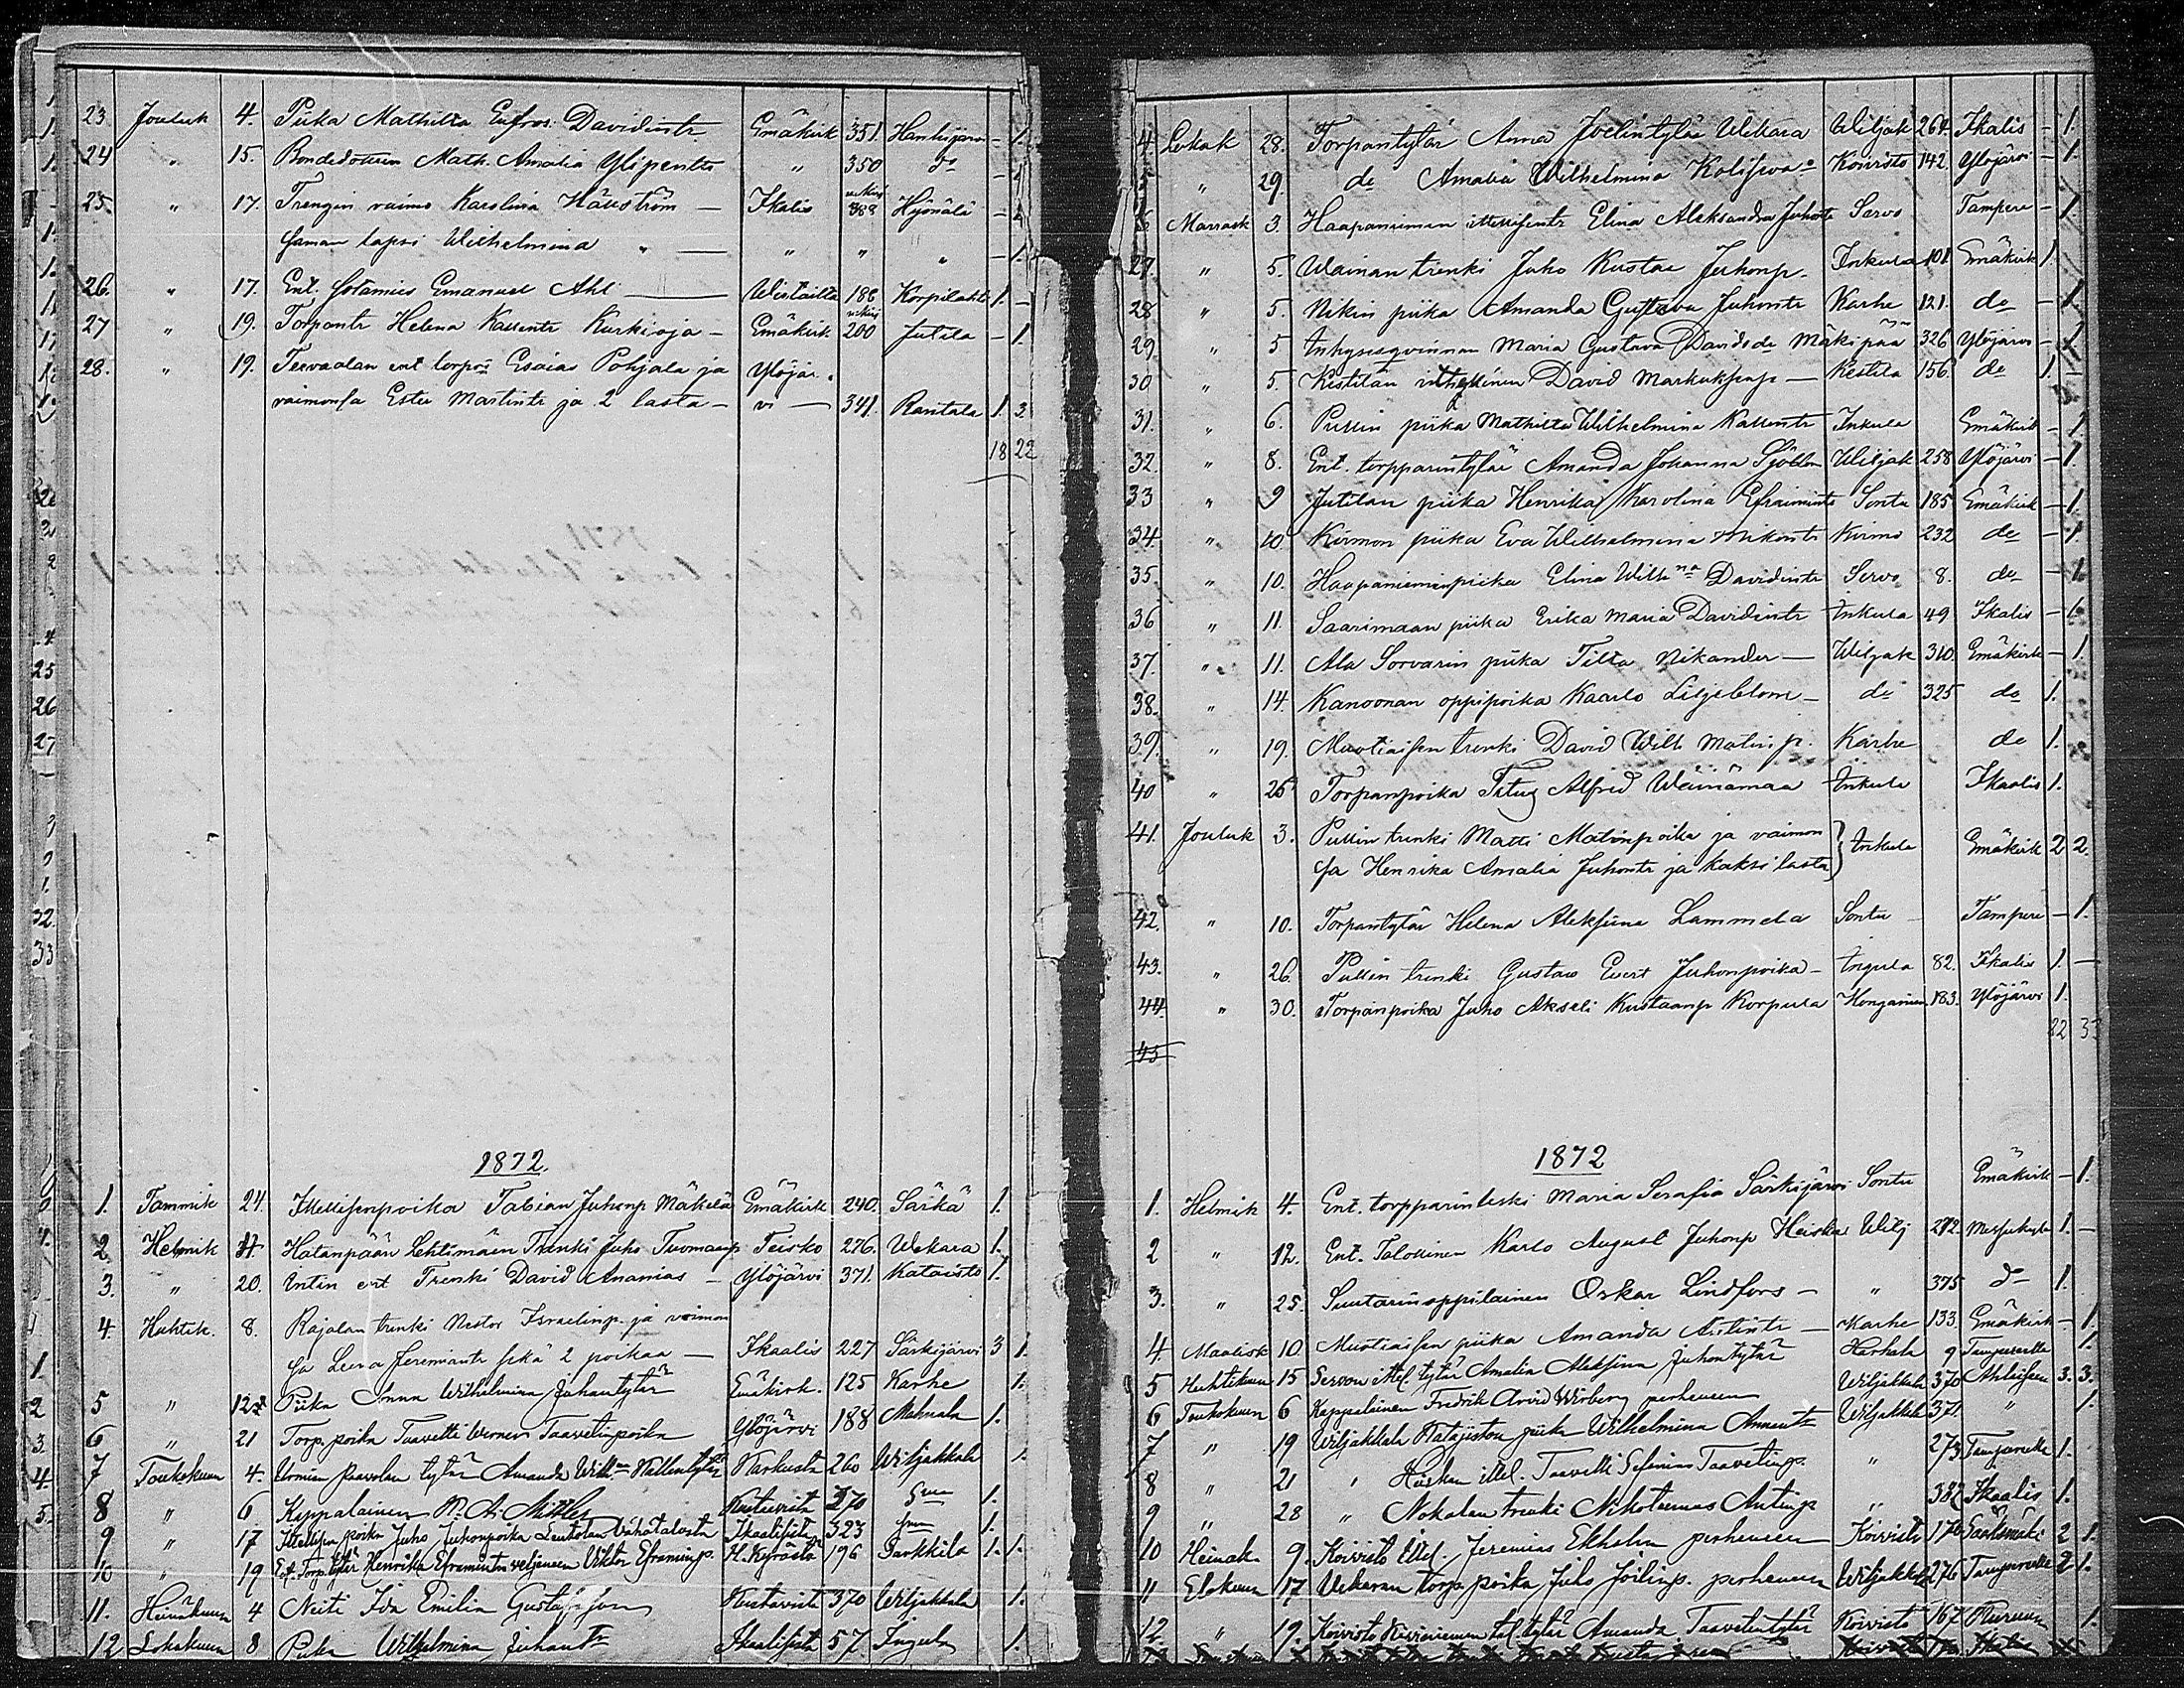 23. Jouluk 4. Piika Mathilda Eufros. Davidintr Emäkirk 351. Hanhijärvi - 1.
24 " 15. Bondedottren Math. Amalia Ylipentti " 350 do - 1
25. " 17. Trengin vaimo Karolina Hällström — Ikalis 388 Hyönälä - 1
saman lapsi Wilhelmina " — " " " - 1.
26. " 17. Ent. sotamies Emanuel Ahl — 186 Korpilahti 1. -
27 " 19. Torpantr Helena Kallentr Kurkioja - Emäkirk 200 Jutila - 1
28. " 19. Teevaalan ent torpp Esaias Pohjala ja Ylöjär-
vaimonsa Ester Martintr ja 2 lasta - vi — 341. Rantala 1. 3.
18 22
1872.
1. Tammik 24. Itsellisenpoika Fabian Juhonp Mäkelä Emäkirk 240. Särkä 1.
2. Helmik Hatanpään Lehtimäen Trenki Juho Tuomaanp Teisko 276. Wekara 1.
3. " 20. Antin ent Trenki David Ananias - Ylöjärvi 371. Kataisto 1.
4. Huhtik. 8. Rajalan trenki Nestor Israelinp. ja vaimon
sa Leena Jeremiantr sekä 2 poikaa — Ikaalis 227 Särkijärvi 3 1.
5 " 12 Piika Anna Wilhelmina Juhantytär Emäkirk. 125 Karhe 1.
6 " 21 Torp. poika Taavetti Werner Taavetinpoika Ylöjärvi 188 Mahnala 1.
7 Toukokuun 4. Paavolan tytär Amanda Kallentytär Karkusta 260 Wiljakkala 1.
8 " 6 Kappalainen K. A. 270 1.
9 " 17 Itsellisen poika Juho Juhonpoika Ikaalisista 323 1.
10 " 19 Ent. Torp. tytär Henrika Efraimintr veljineen Viktor Efraiminp. H. Kyröstä 196 Parkkila 1. 1.
11. Heinäkuun 4 Neiti Ida Emilia Gustafsson Kustavista 370 Wiljakkala 1.
12 Lokakuun 8 Piika Wilhelmina Juhantr Ikaalisista 57. Ingula 1.
4. Lokak 28. Torpantytär Anna Joelintytär Wekara Wiljak 264. Ikalis - 1.
5 " 29. do Amalia Wilhelmina Koivisto 142. Ylöjärvi - 1.
6 Marrask 3. Haapaniemen itsellisentr Elina Aleksandra Juhontr Servo Tampere - 1.
27. " 5. Wainan trenki Juho Kustaa Juhonp. Inkula 101 Emäkirk 1.
28 " 5. Nikin piika Amanda Gustava Juhontr Karhe 121. do - 1.
29 " 5 Inhysesqvinnan Maria Gustava Davidsdr Mäkipää 326 Ylöjärvi - 1
30 " 5. Kestilän David Markuksenp — Kestilä 156. do 1.
31. " 6. Pullin piika Mathilda Wilhelmina Kallentr Inkula Emäkirk - 1
32 " 8. Ent. torpparintytär Amanda Johanna Sjöblom Wiljak 258 Ylöjärvi - 1.
33 " 9 Jutilan piika Henrika Karolina Efraimintr Sontu 185 Emäkirk - 1.
34 " 10. Kirmon piika Eva Wilhelmina Mikontr Kirmo 232 do - 1
35. " 10. Haapaniemen piika Elina Wilhna Davidintr Servo 8. do - 1.
36 " 11. Saarimaan piika Erika Maria Davidintr Inkula 49 Ikalis - 1.
37. " 11. Ala Sorvarin piika Tilta Nikander — Wiljak 310. Emäkirk - 1.
38. " 14. Kanoonan oppipoika Kaarlo Liljeblom - do 325 do 1.
39. " 19. Muotiaisen trenki David Wilh Matinp. Karhe do 1.
40 " 25 Torpanpoika Titus Alfred Wäinämaa Inkula Ikaalis 1.
41. Jouluk 3. Pullin trenki Matti Matinpoika ja vaimon
sa Henrika Amalia Juhontr ja kaksi lasta Inkula Emäkirk 2 2.
42. " 10. Torpantytär Helena Aleksina Lammela Sontu Tampere - 1.
43. " 26. Pullin trenki Gustav Evert Juhonpoika - Ingula 82. Ikalis 1. -
44. " 30. Torpanpoika Juho Akseli Kustaanp Korpula 183. Ylöjärvi 1.
22 33
45
1872
1. Helmik 4. Ent. torpparin leski Maria Serafia Särkijärvi Sontu Emäkirk - 1.
2 " 12. Ent. Talollinen Karlo August Juhonp Heiska Wilj 272. 1. -
3. " 25. Suutarinoppilainen Oskar Lindfors - " 375 do 1.
4. Maalisk 10. Muotiaisen piika Amanda Antintr — Karhe 133. Emäkirk - 1.
5 Huhtikuun 15 Servon itsel. tytär Amalia Aleksina Juhontytär Harhala 9 Tampereelle 1.
6 Toukokuun 6 Kappalainen Fredrik Arvid Wirberg perheneen Wiljakkala 370 Ahlaisen 3. 3.
7 " 19 Wiljakkala Katajiston piika Wilhelmina Wiljakkala 371. " 1.
8 " 21 " Heiskan itsel. Taavetti Taavetinp. " 273 Tampereelle 1.
9 " 28 " Nokalan trenki Nikodemus Antinp " 382 Ikaalis 1.
10 Heinäk. 9. Koivisto Itsel. Jeremias Ekholm perheneen Koivisto 170 Saaksmäki 2 1.
11 Elokuun 17 Wekaran torp. poika Juho Joelinp. perheneen Wiljakkala 276 Tampereelle 2 1.
12. " 19. Koivisto tal. tytär Amanda Taavetintytär Koivisto 167 1.